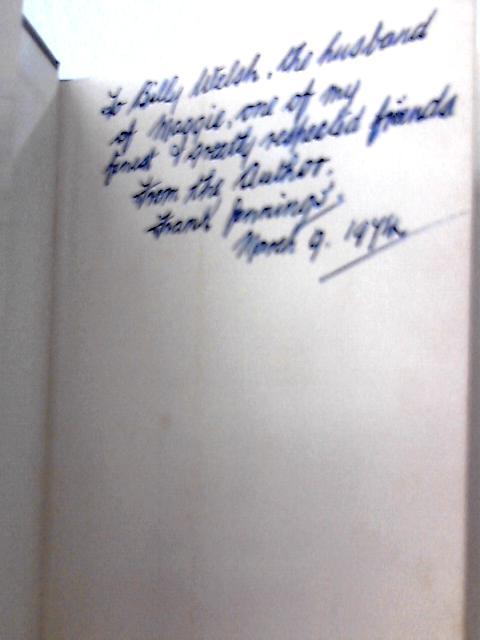 To Billy Welsh, the husband
of Maggie, one of my
finest & greatly respected friends
From the Author.
Frank Jennings.
March 9. 1974